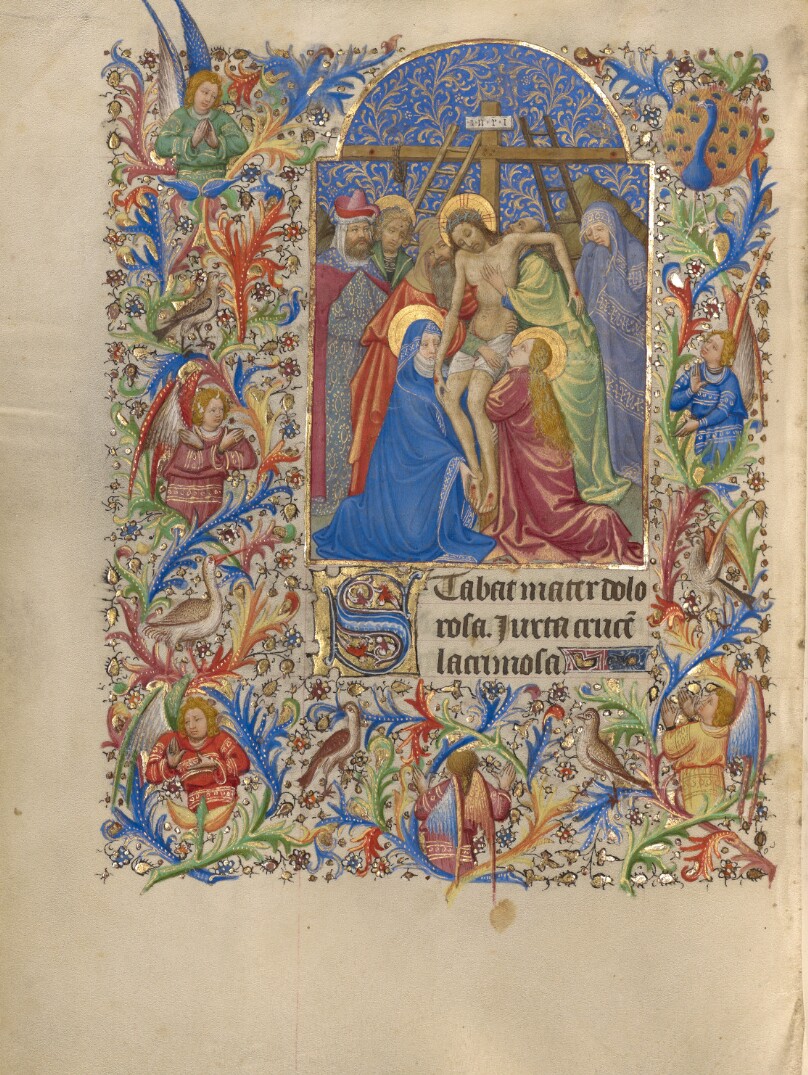 I·N·R·I
Stabat mater dolo
rosa. Juxta crucē
lacrimosa